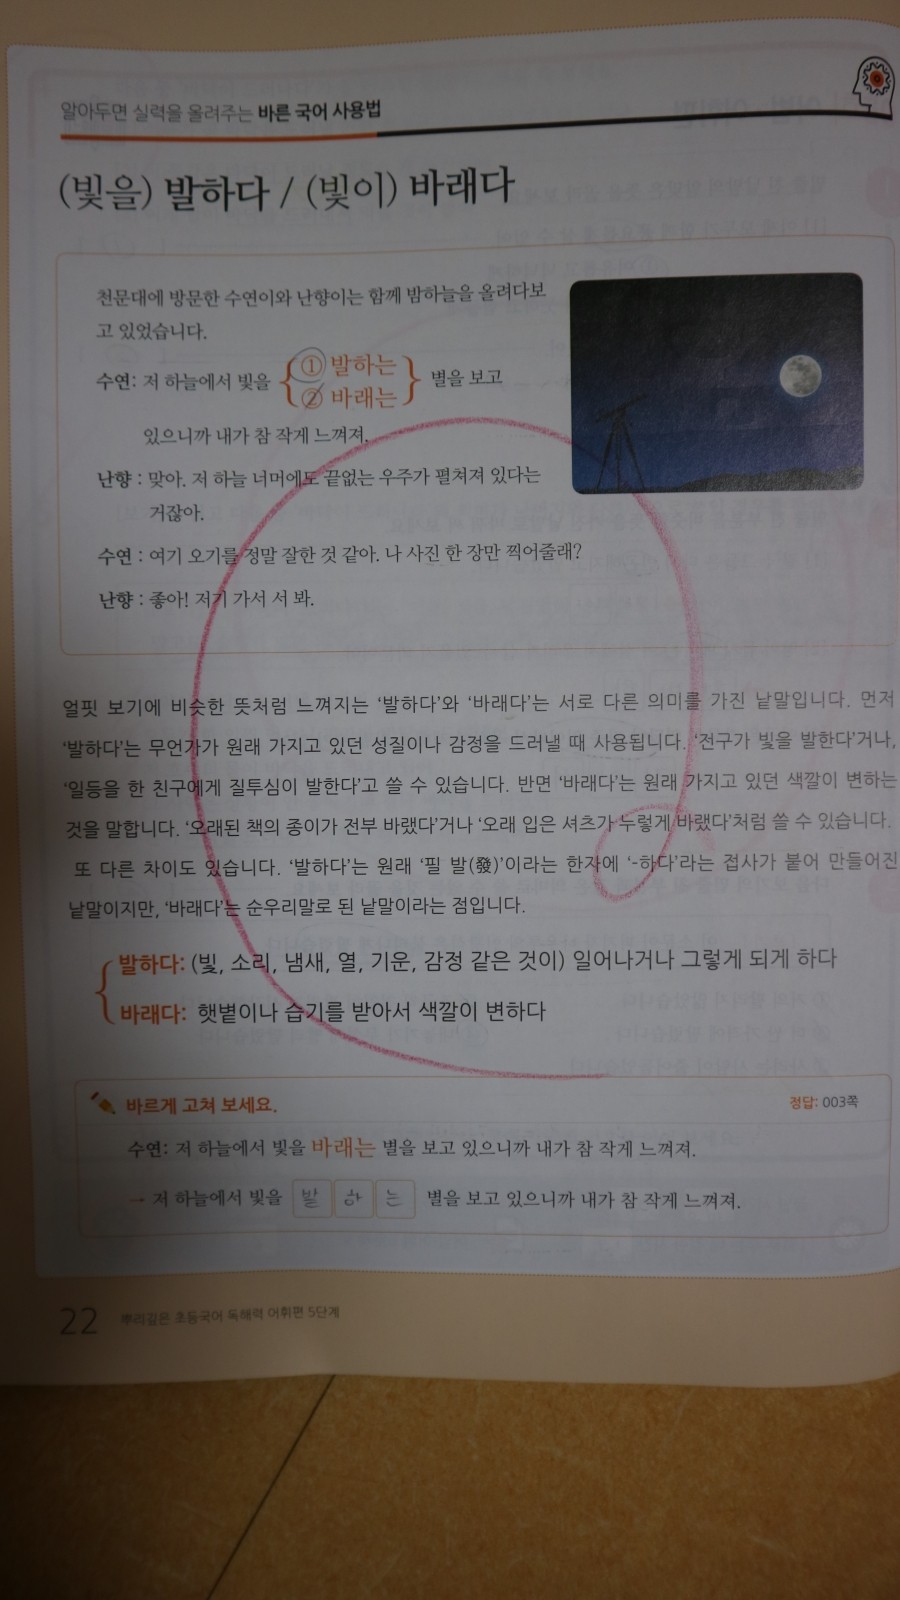 알아두면 실력을 올려주는 바른 국어 사용법
(빛을) 발하다 / (빛이) 바래다
천문대에 방문한 수연이와 난향이는 함께 밤하늘을 올려다보
고 있었습니다.
수연: 저 하늘에서 빛을 { ① 발하는
② 바래는 } 별을 보고
있으니까 내가 참 작게 느껴져.
난향 : 맞아. 저 하늘 너머에도 끝없는 우주가 펼쳐져 있다는
거잖아.
수연 : 여기 오기를 정말 잘한 것 같아. 나 사진 한 장만 찍어줄래?
난향 : 좋아! 저기 가서 서 봐.
얼핏 보기에 비슷한 뜻처럼 느껴지는 ‘발하다’와 ‘바래다’는 서로 다른 의미를 가진 낱말입니다. 먼저
‘발하다’는 무언가가 원래 가지고 있던 성질이나 감정을 드러낼 때 사용됩니다. ‘전구가 빛을 발한다’거나,
‘일등을 한 친구에게 질투심이 발한다’고 쓸 수 있습니다. 반면 ‘바래다’는 원래 가지고 있던 색깔이 변하는
것을 말합니다. ‘오래된 책의 종이가 전부 바랬다’거나 ‘오래 입은 셔츠가 누렇게 바랬다’처럼 쓸 수 있습니다.
또 다른 차이도 있습니다. ‘발하다’는 원래 ‘필 발(發)’이라는 한자에 ‘-하다’라는 접사가 붙어 만들어진
낱말이지만, ‘바래다’는 순우리말로 된 낱말이라는 점입니다.
발하다: (빛, 소리, 냄새, 열, 기운, 감정 같은 것이) 일어나거나 그렇게 되게 하다
바래다: 햇볕이나 습기를 받아서 색깔이 변하다
바르게 고쳐 보세요. 정답: 003쪽
수연: 저 하늘에서 빛을 바래는 별을 보고 있으니까 내가 참 작게 느껴져.
→ 저 하늘에서 빛을 발 하 는 별을 보고 있으니까 내가 참 작게 느껴져.
22 뿌리깊은 초등국어 독해력 어휘편 5단계